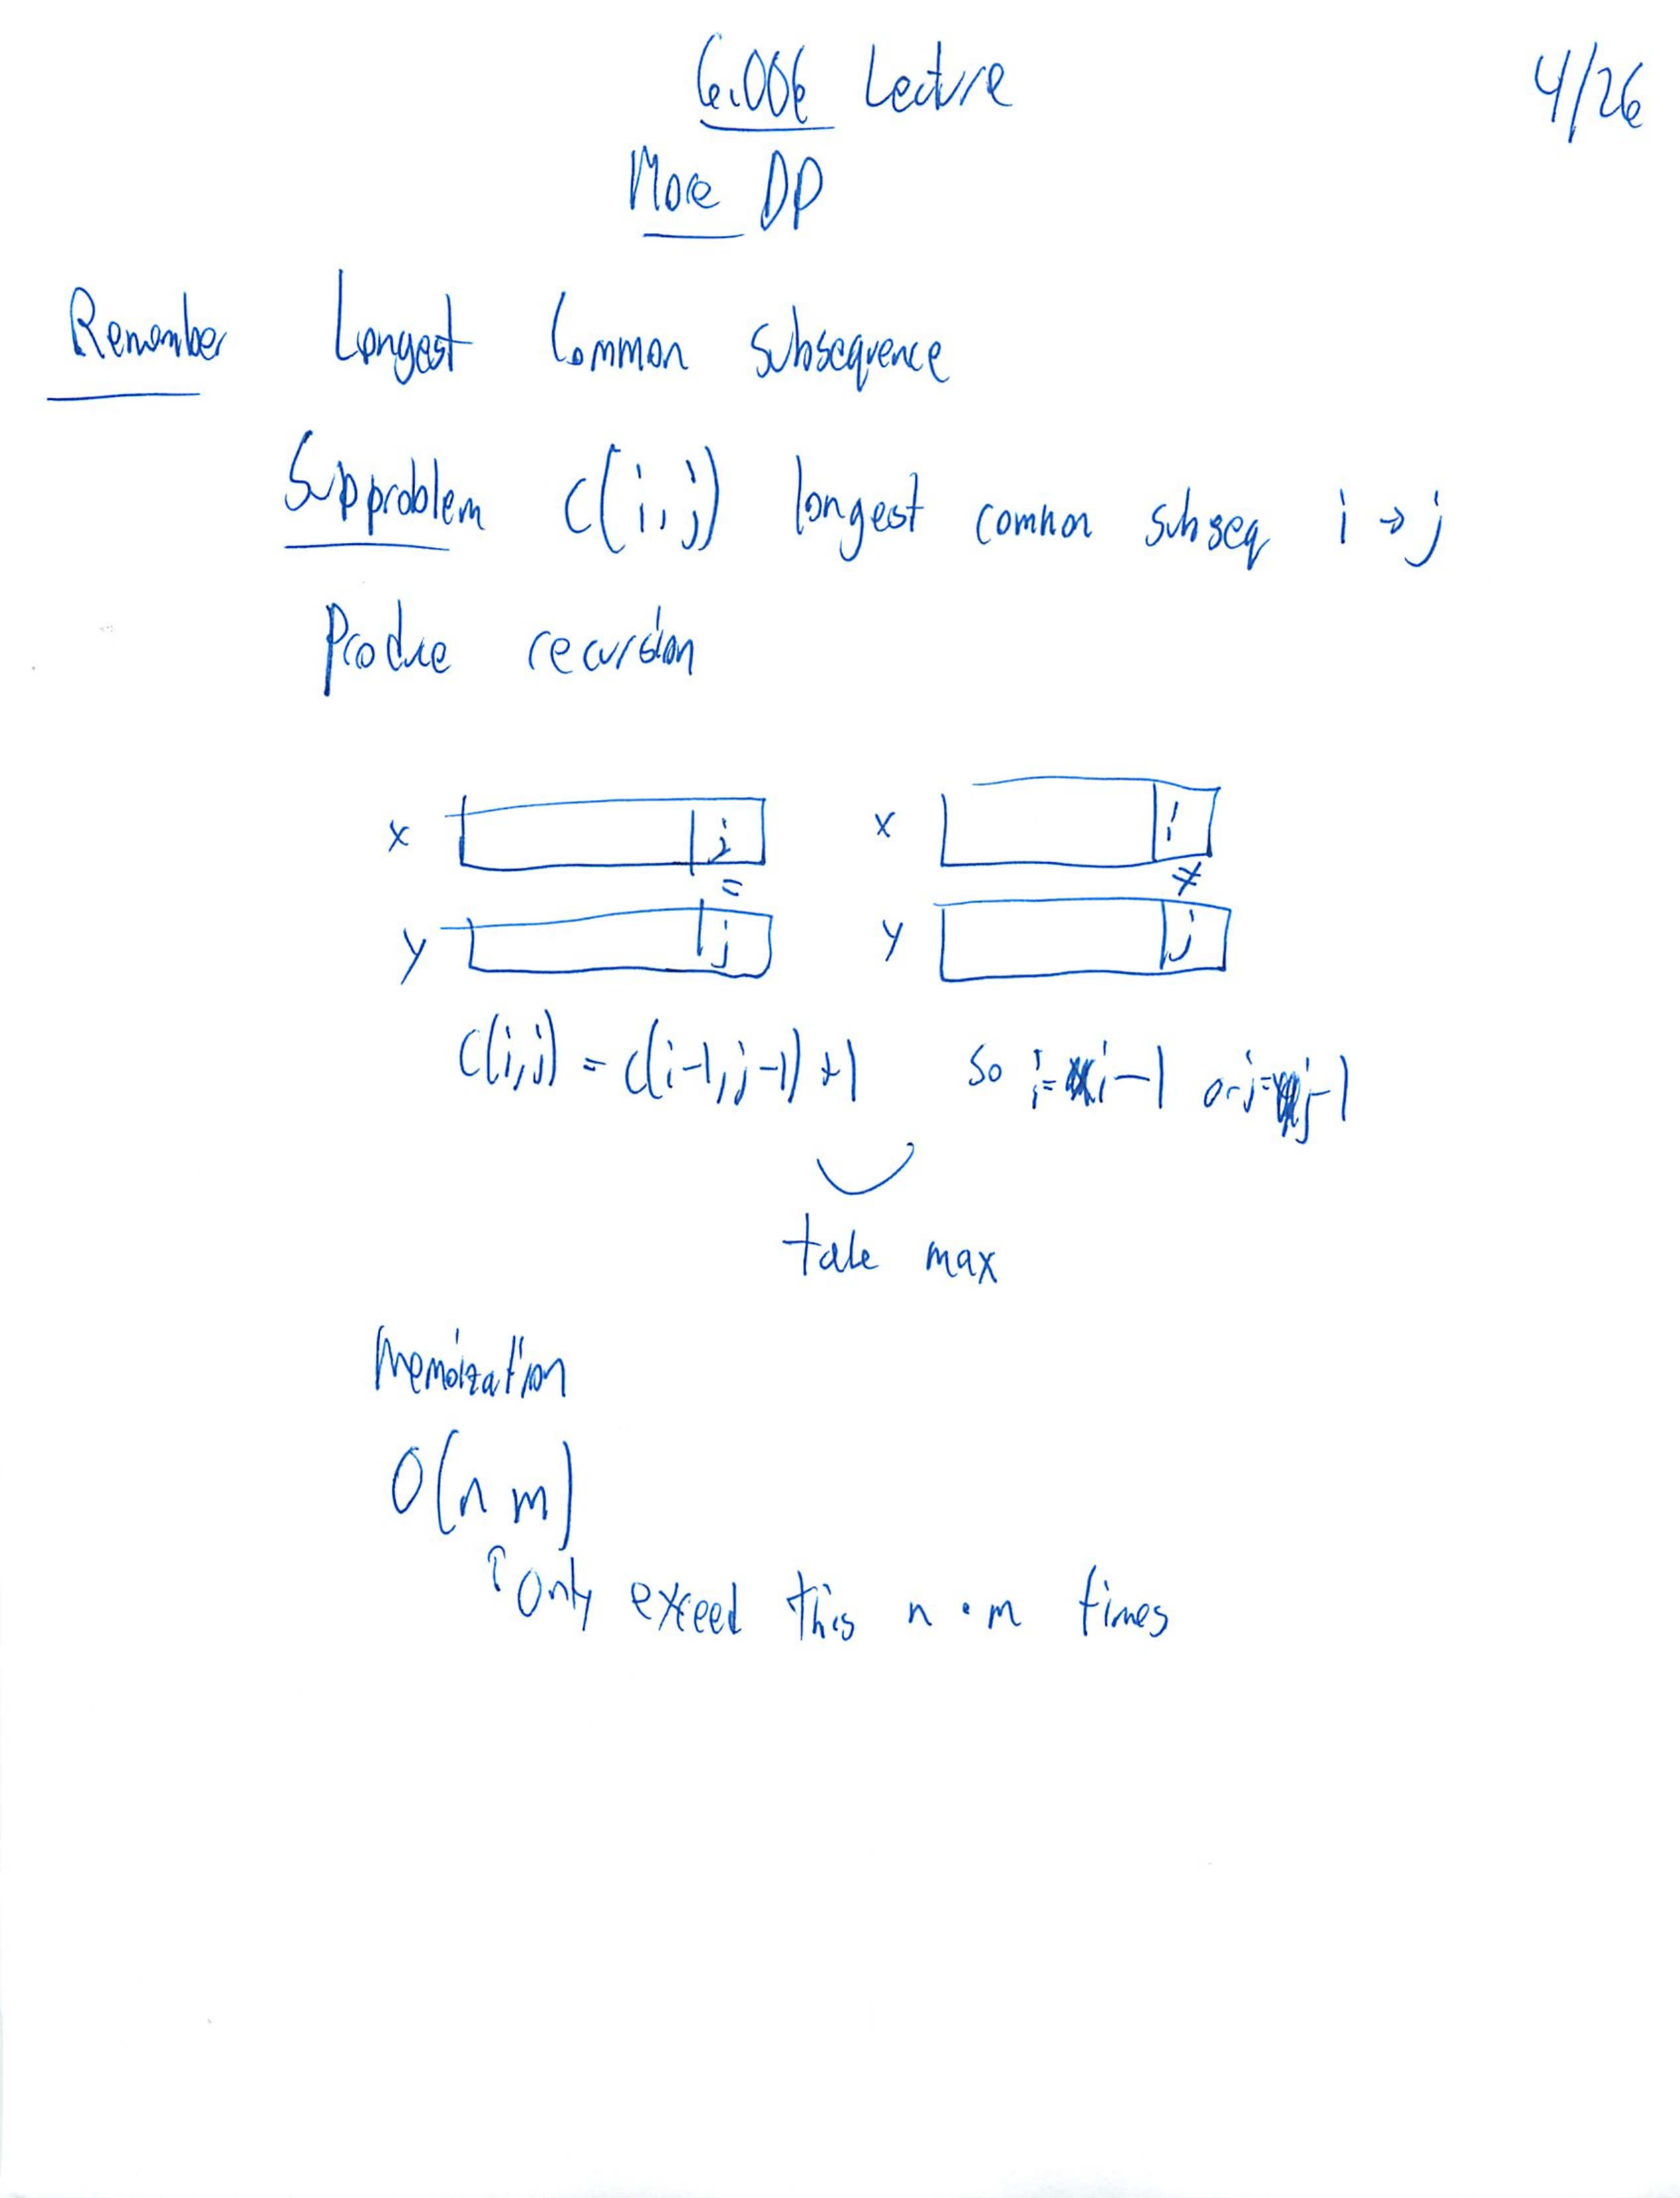 6.006 Lecture 4/26
More DP
Remember Longest Common Subsequence
Supproblem C(i,j) longest common subseq i → j
Produce recursion
x i x i
= ≠
y j y j
C(i,j) = C(i-1, j-1) + 1 so i = i-1 or j = j-1
take max
Memoization
O(n m)
Only exceed this n · m times